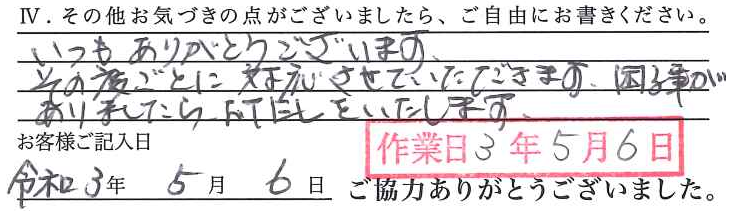 Ⅳ．その他お気づきの点がございましたら、ご自由にお書きください。
いつもありがとうございます。
その度ごとに対応させていただきます、困る事が
ありましたら をいたします。
お客様ご記入日
作業日3年5月6日
令和3年 5月 6日
ご協力ありがとうございました。